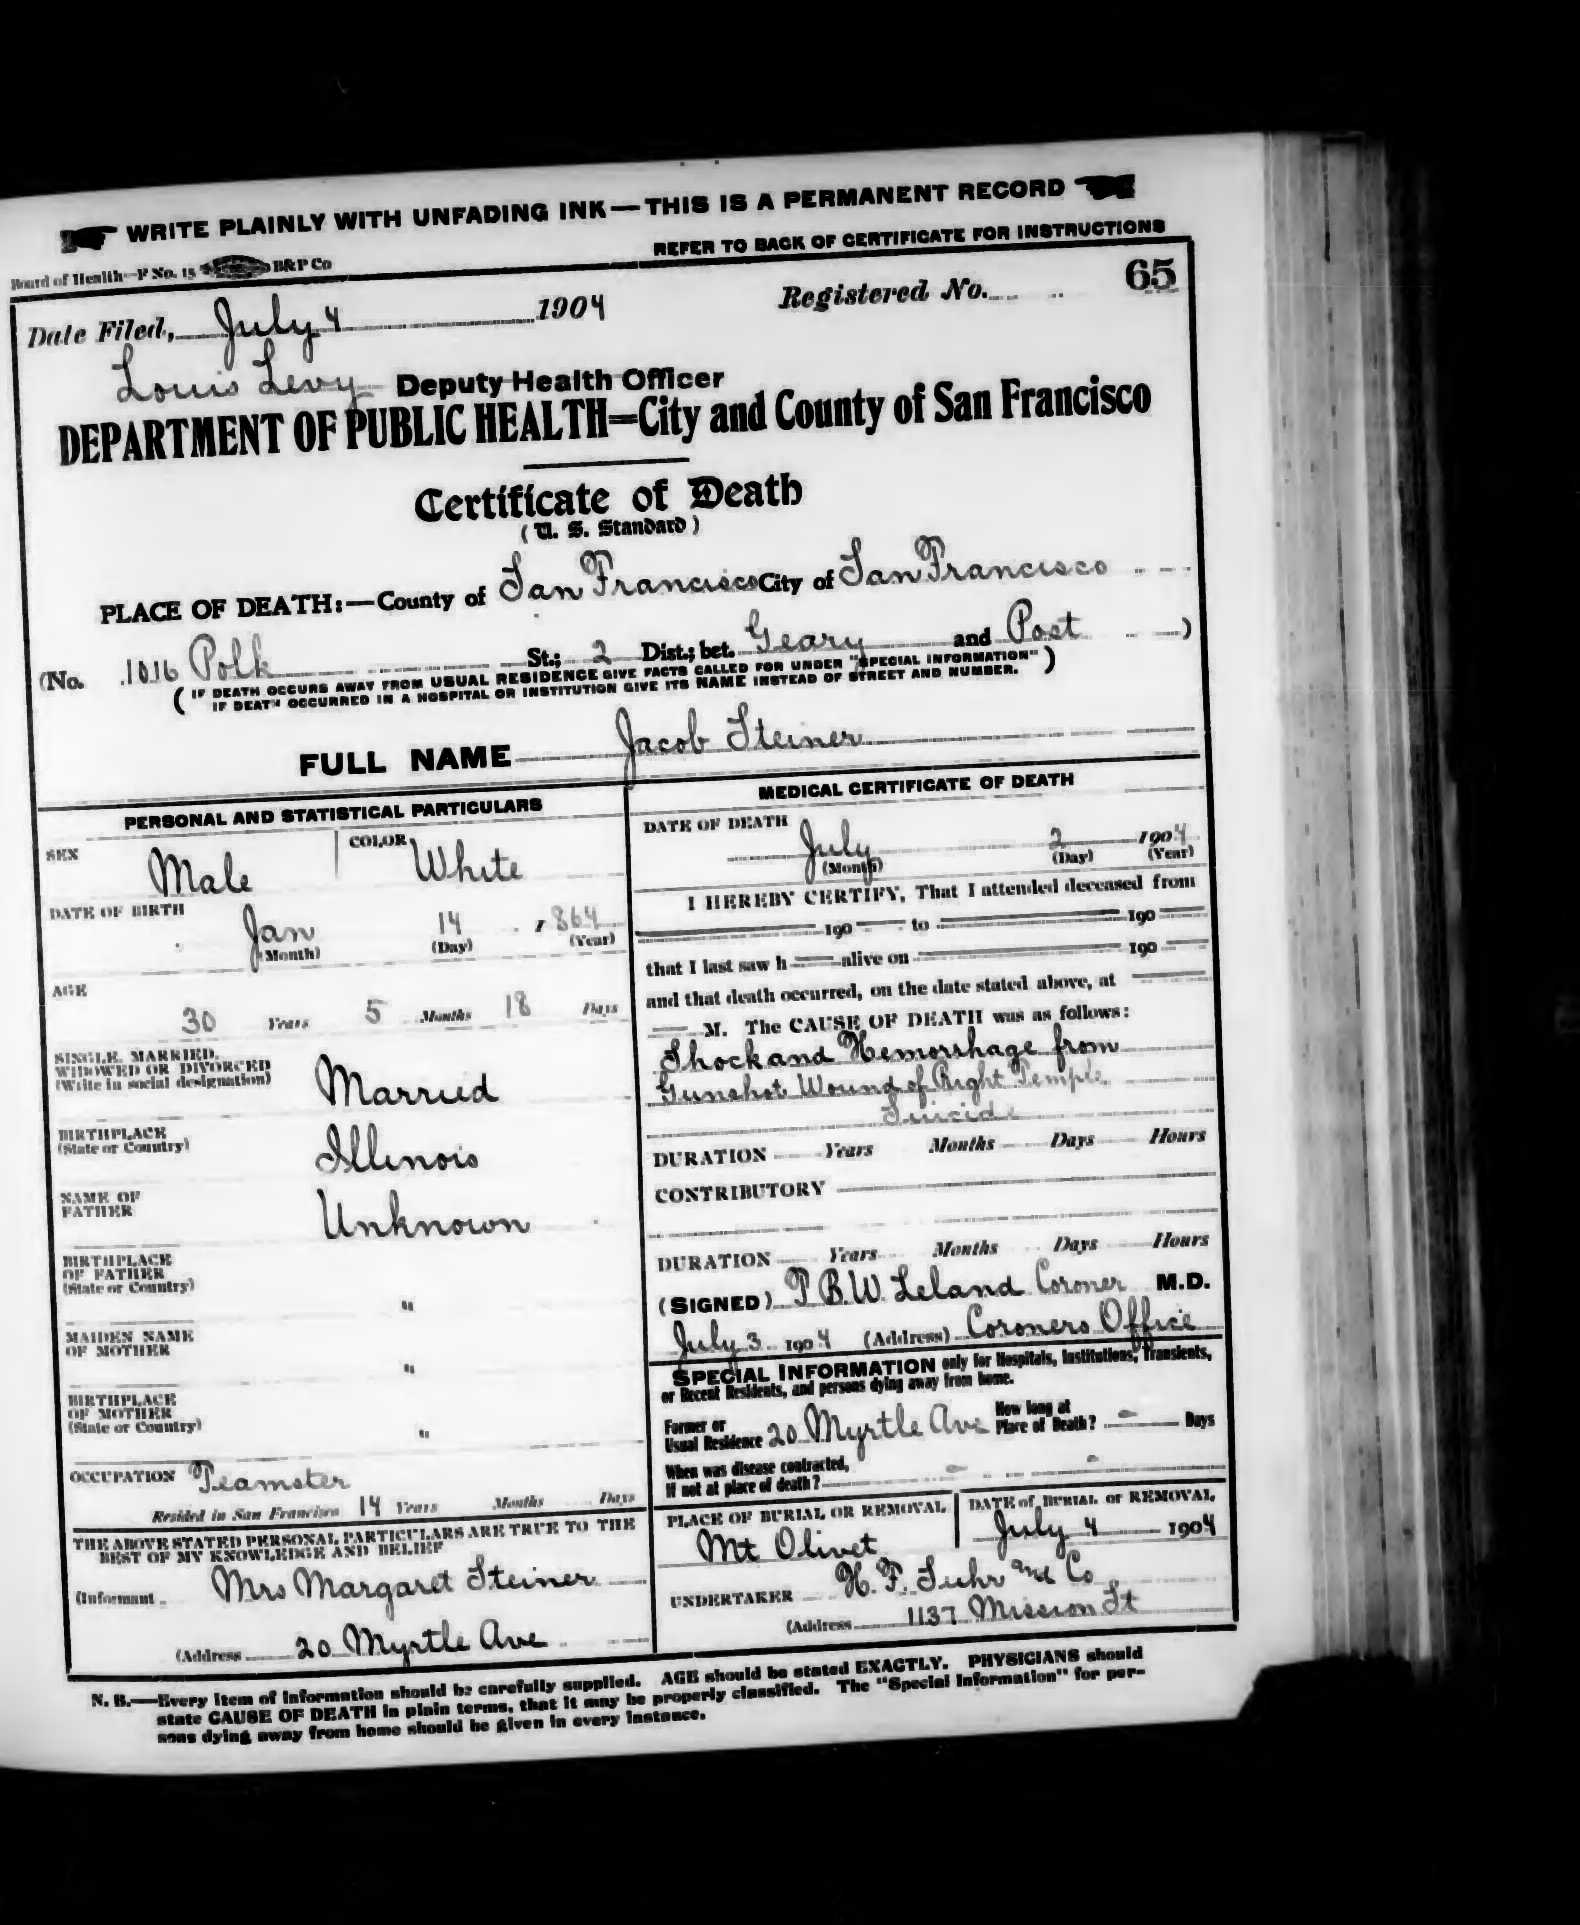 WRITE PLAINLY WITH UNFADING INK—THIS IS A PERMANENT RECORD
REFER TO BACK OF CERTIFICATE FOR INSTRUCTIONS
Board of Health—F No. 15 B&P Co
65
Date Filed, July 4 1904 Registered No.
Louis Levy Deputy Health Officer
DEPARTMENT OF PUBLIC HEALTH=City and County of San Francisco
Certificate of Death
(U. S. Standard)
PLACE OF DEATH:—County of San Francisco City of San Francisco
(No. 1016 Polk St.; 2 Dist.; bet. Geary and Post )
( IF DEATH OCCURS AWAY FROM USUAL RESIDENCE GIVE FACTS CALLED FOR UNDER "SPECIAL INFORMATION" )
IF DEATH OCCURRED IN A HOSPITAL OR INSTITUTION GIVE ITS NAME INSTEAD OF STREET AND NUMBER.
FULL NAME Jacob Steiner
PERSONAL AND STATISTICAL PARTICULARS
SEX Male COLOR White
DATE OF BIRTH
Jan 14 1864
(Month) (Day) (Year)
AGE
30 Years 5 Months 18 Days
SINGLE, MARRIED,
WIDOWED OR DIVORCED
(Write in social designation) Married
BIRTHPLACE
(State or Country) Illinois
NAME OF
FATHER Unknown
BIRTHPLACE
OF FATHER
(State or Country) "
MAIDEN NAME
OF MOTHER "
BIRTHPLACE
OF MOTHER
(State or Country) "
OCCUPATION Teamster
Resided in San Francisco 14 Years Months Days
THE ABOVE STATED PERSONAL PARTICULARS ARE TRUE TO THE
BEST OF MY KNOWLEDGE AND BELIEF
(Informant Mrs Margaret Steiner
(Address 20 Myrtle Ave
MEDICAL CERTIFICATE OF DEATH
DATE OF DEATH
July 2 1904
(Month) (Day) (Year)
I HEREBY CERTIFY, That I attended deceased from
190 to 190
that I last saw h alive on 190
and that death occurred, on the date stated above, at
M. The CAUSE OF DEATH was as follows:
Shock and Hemorrhage from
Gunshot Wound of Right Temple
Suicide
DURATION Years Months Days Hours
CONTRIBUTORY
DURATION Years Months Days Hours
(SIGNED) T B.W. Leland Coroner M.D.
July 3 1904 (Address) Coroners Office
SPECIAL INFORMATION only for Hospitals, Institutions, Transients,
or Recent Residents, and persons dying away from home.
Former or
Usual Residence 20 Myrtle Ave How long at
Place of Death? - Days
When was disease contracted,
If not at place of death? - -
PLACE OF BURIAL OR REMOVAL DATE of BURIAL or REMOVAL
Mt Olivet July 4 1904
UNDERTAKER H. F. Suhr and Co
(Address 1137 Mission St
N. B.—Every item of information should be carefully supplied. AGE should be stated EXACTLY. PHYSICIANS should
state CAUSE OF DEATH in plain terms, that it may be properly classified. The "Special Information" for per-
sons dying away from home should be given in every instance.